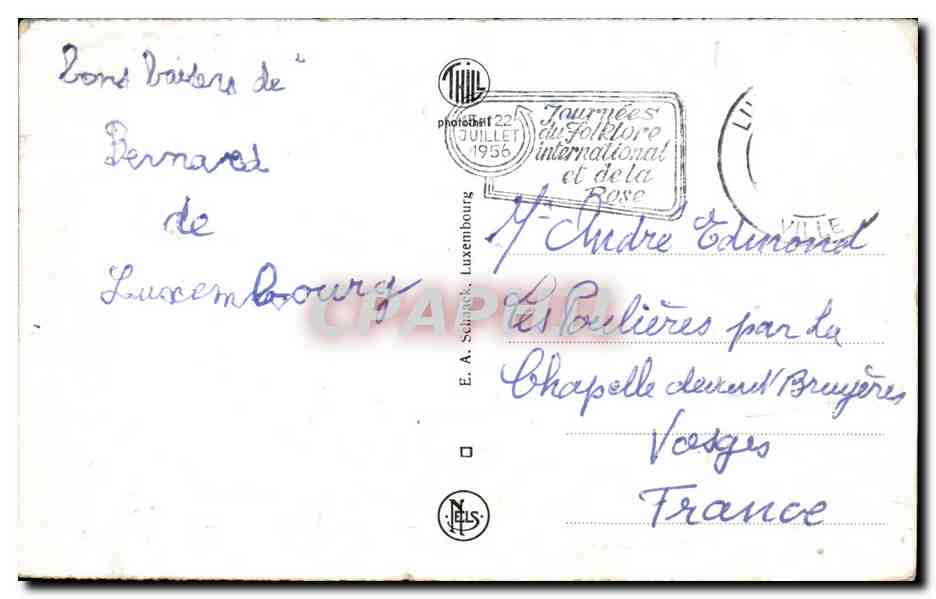 Bons Baisers de
Bernard
de
Luxembourg
THILL
photothill
22
JUILLET
1956
Journées
du Folklore
international
et de la
Rose
VILLE
E. A. Schaack, Luxembourg
NELS
CPAPHIL
Mr André Edmond
Les Poulières par La
Chapelle devant Bruyères
Vosges
France